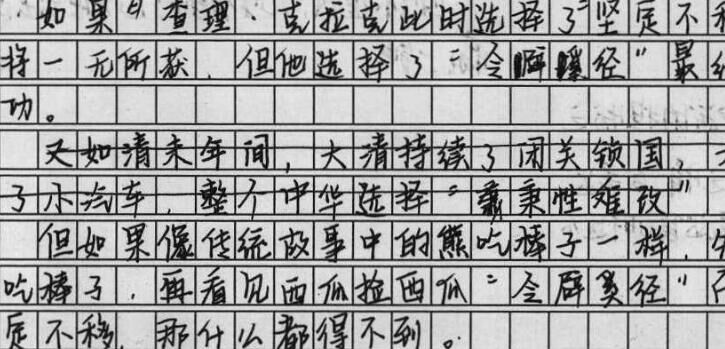 如果查理·克拉克此时选择了"坚定不
将一无所获,但他选择了"令辟蹊径"最
功。
又如清末年间,大清持续了闭关锁国,
了小汽车,整个中华选择"秉性难改"
但如果像传统故事中的熊吃棒子一样,
吃棒子,再看见西瓜捡西瓜"令辟奚径"
定不移,那什么都得不到。